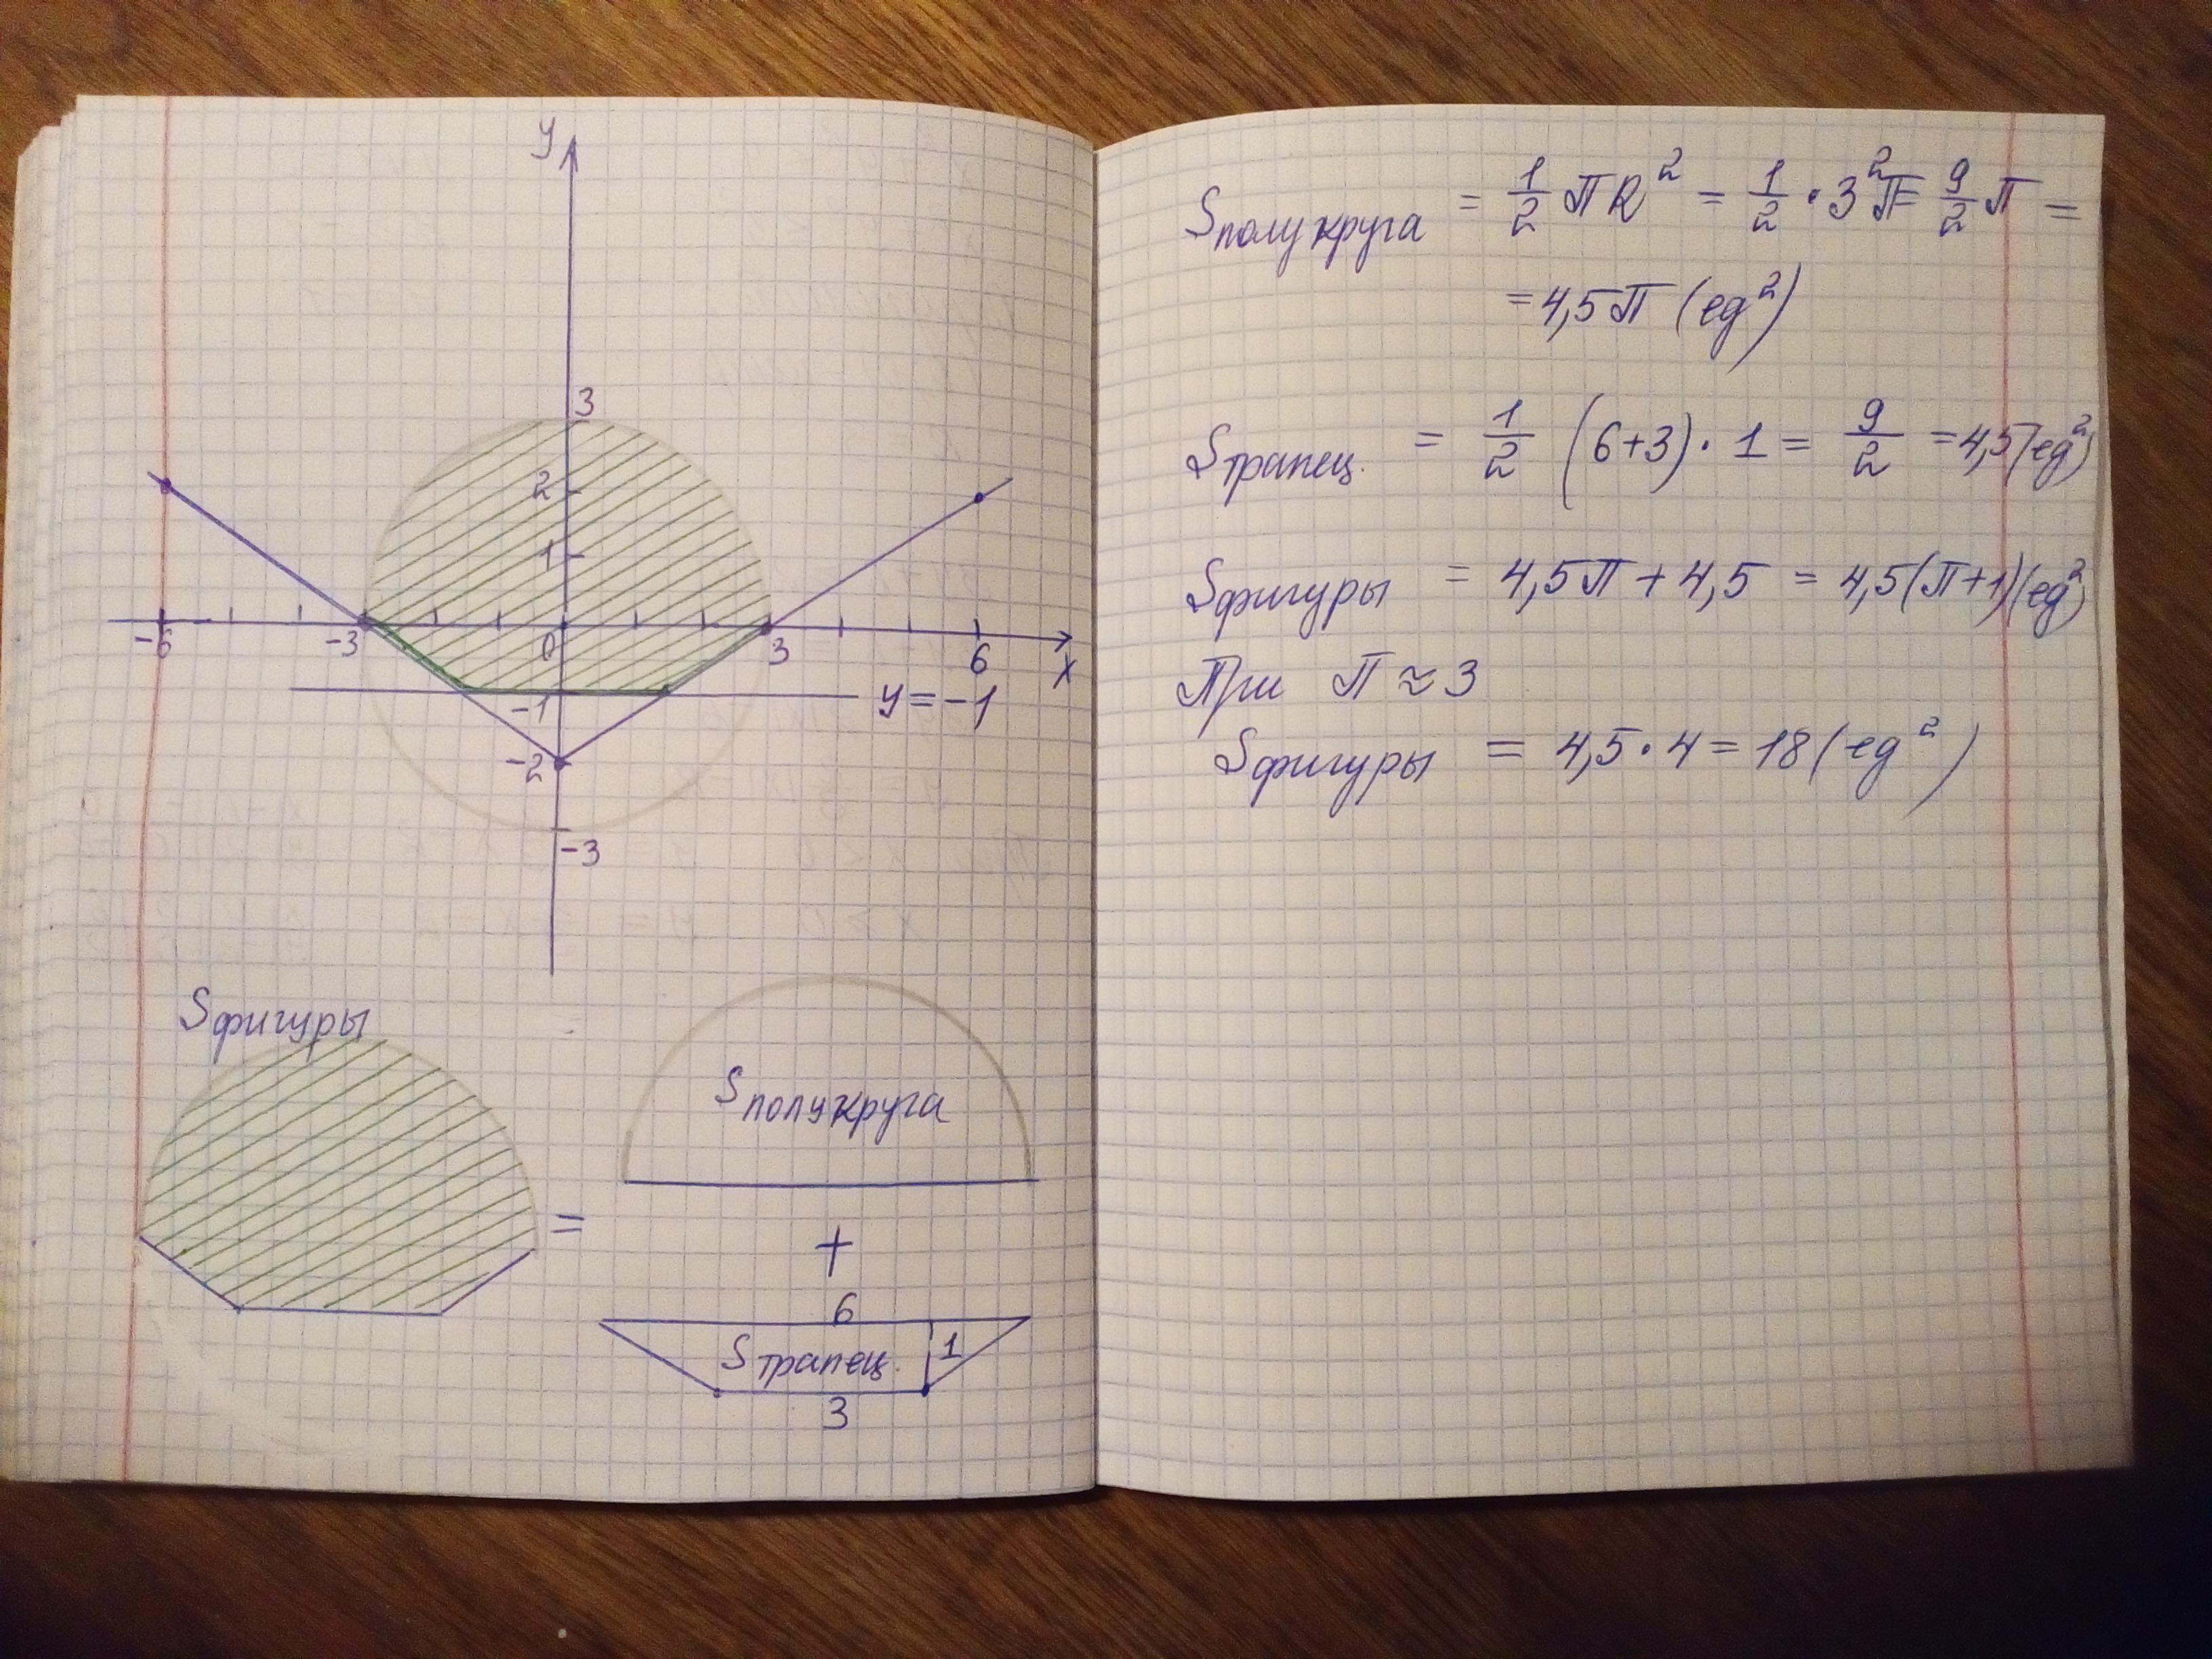 y
3
2
1
-6 -3 0 3 6 x
-1 y = -1
-2
-3
Sфигуры
Sполукруга
=
+
6
Sтрапец. 1
3
Sполукруга = 1/2 πR² = 1/2 · 3²π = 9/2 π =
= 4,5π (ед²)
Sтрапец. = 1/2 (6+3) · 1 = 9/2 = 4,5(ед²)
Sфигуры = 4,5π + 4,5 = 4,5(π+1)(ед²)
При π ≈ 3
Sфигуры = 4,5 · 4 = 18 (ед²)